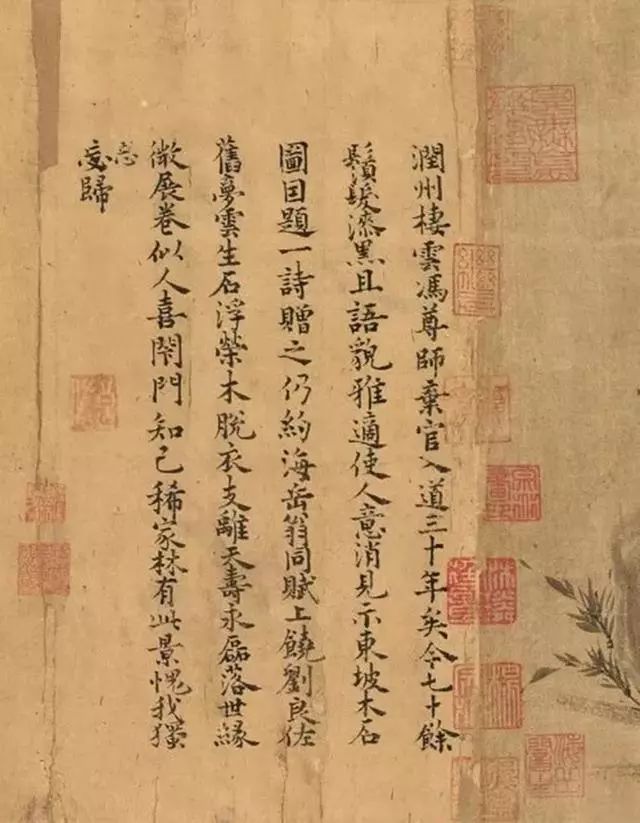 潤州棲雲馮尊師棄官入道三十年矣今七十餘
鬚髮漆黑且語貌雅適使人意消見示東坡木石
圖因題一詩贈之仍約海岳翁同賦上饒劉良佐
舊夢雲生石浮榮木脫衣支離天壽永磊落世緣
微展卷似人喜閉門知己稀家林有此景愧我獨
忘
忘歸